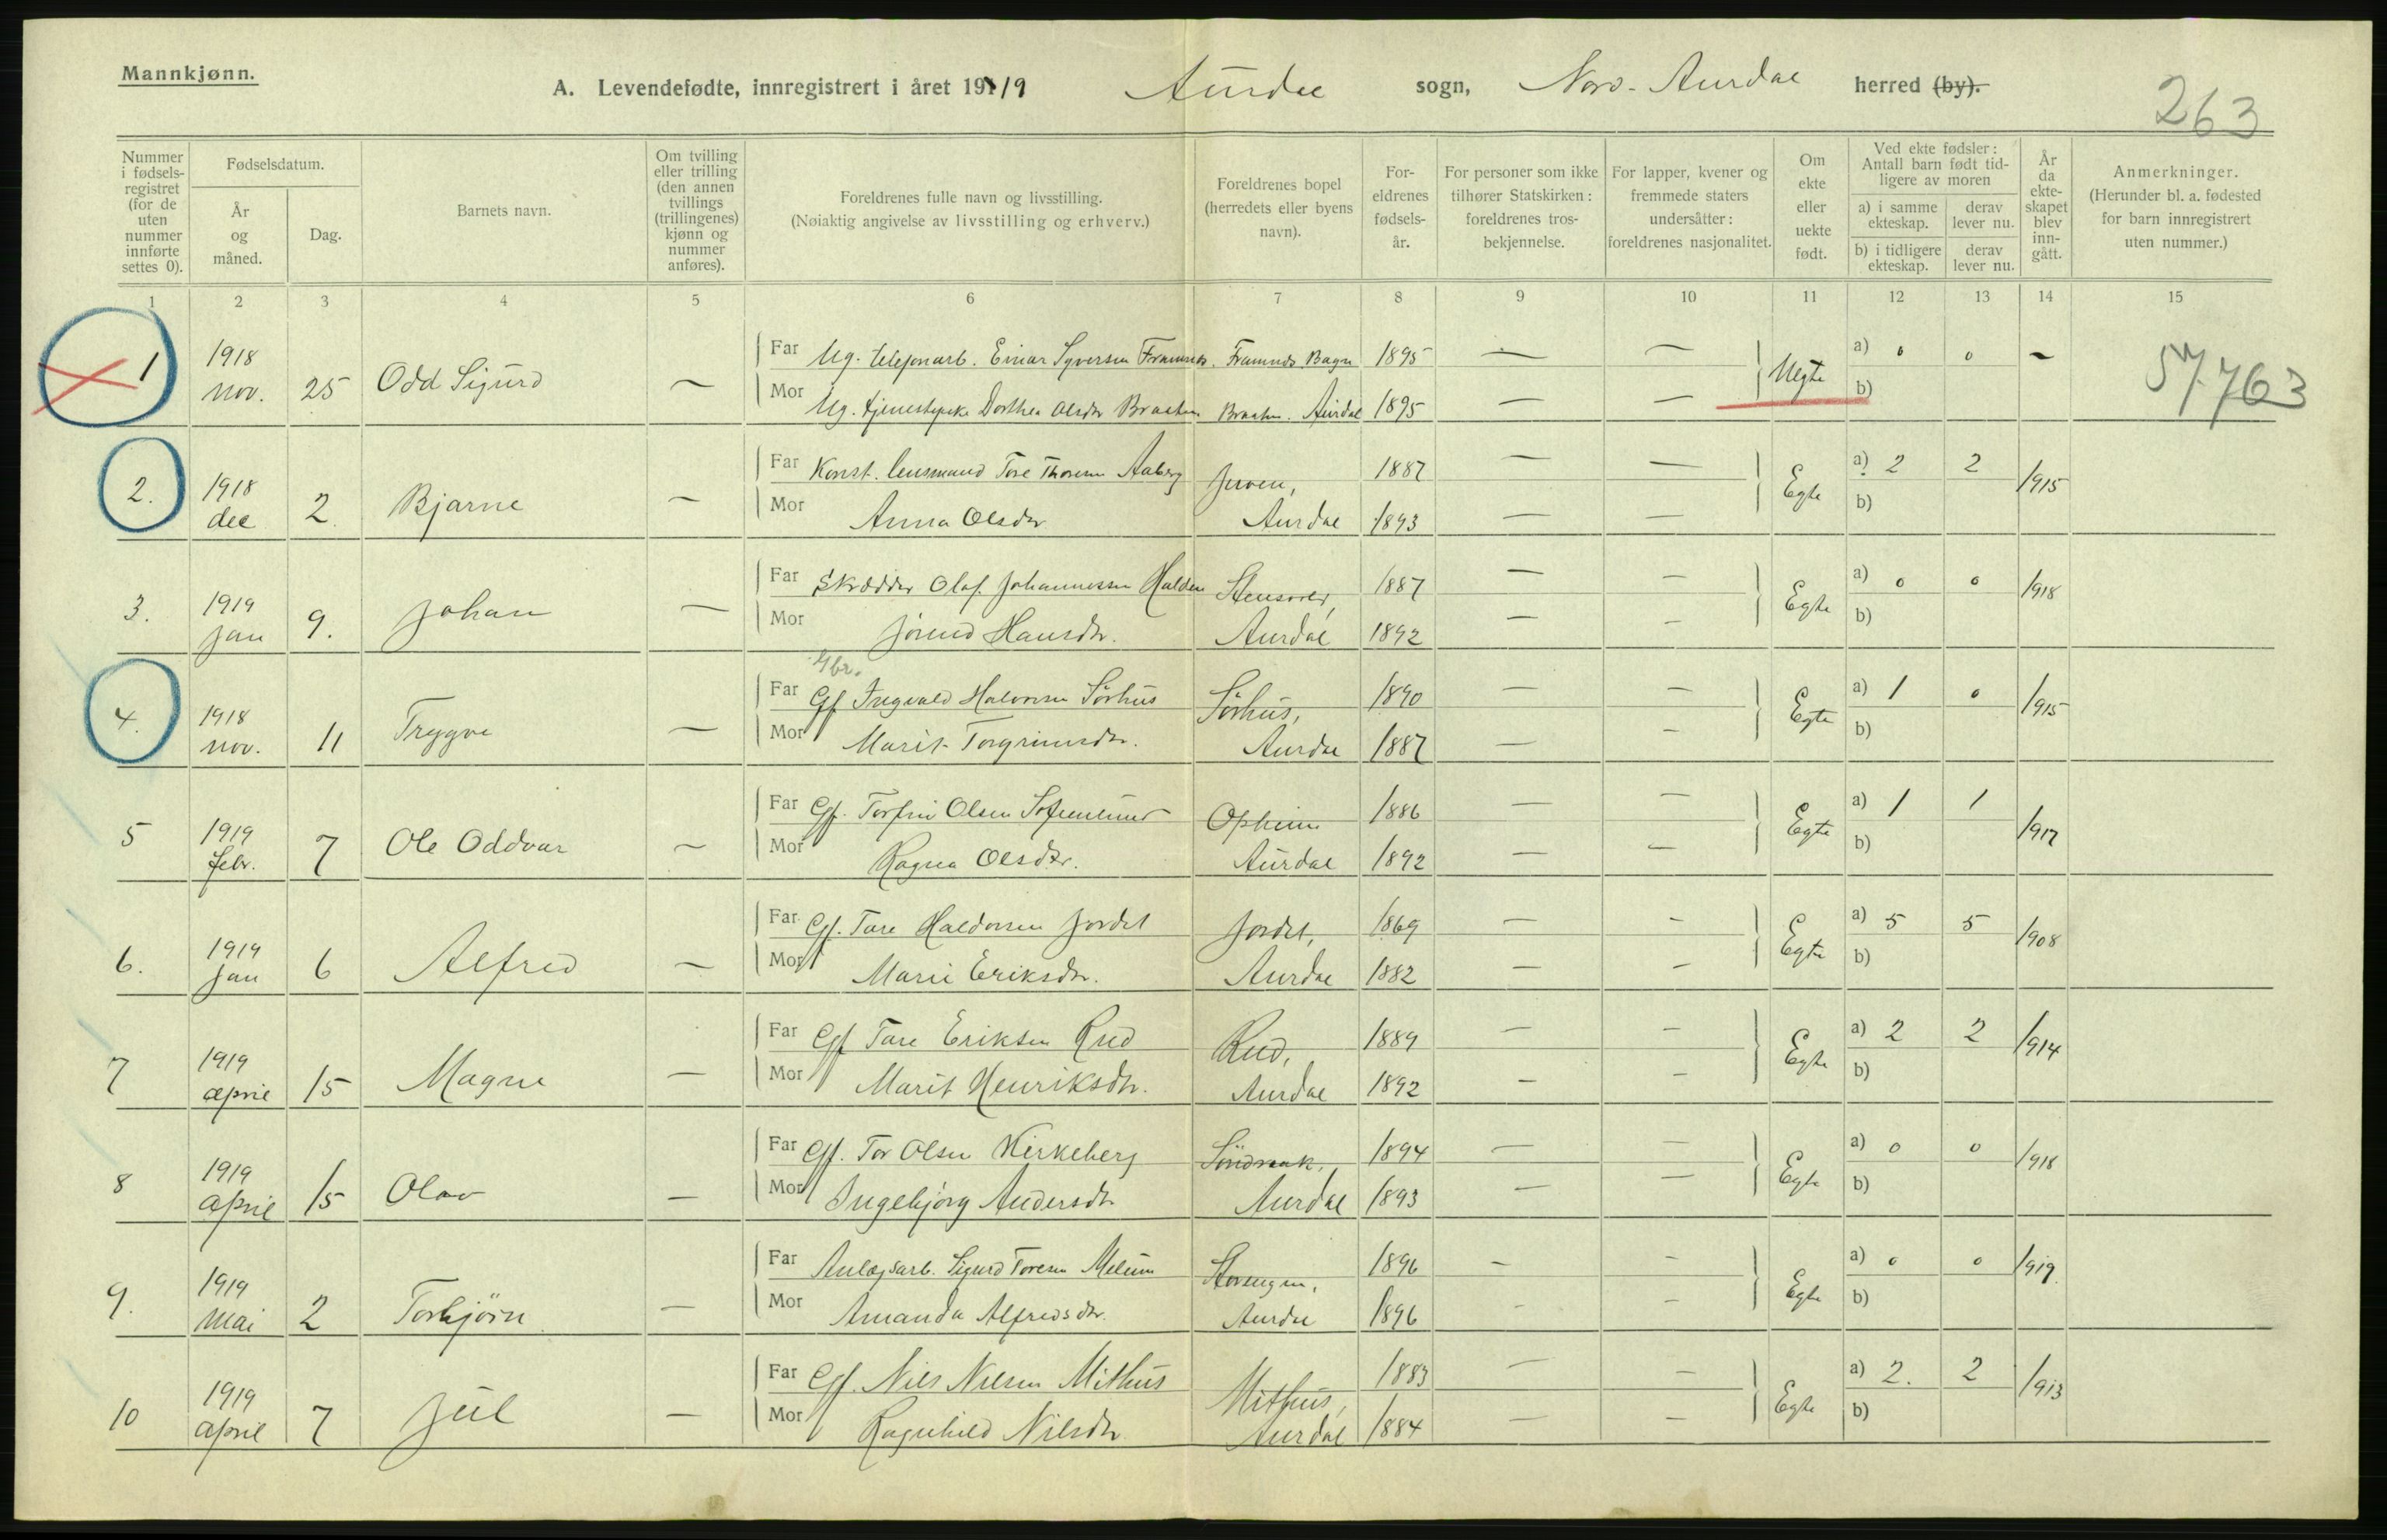 Mannkjønn.
A. Levendefødte, innregistrert i året 1919 Aurdal sogn, Nord-Aurdal herred (by).
263
Nummer i fødsels-registret (for de uten nummer innførte settes 0).
Fødselsdatum.
År og måned.
Dag.
Barnets navn.
Om tvilling eller trilling (den annen tvillings (trillingenes) kjønn og nummer anføres).
Foreldrenes fulle navn og livsstilling.
(Nøiaktig angivelse av livsstilling og erhverv.)
Foreldrenes bopel (herredets eller byens navn).
For-eldrenes fødsels-år.
For personer som ikke tilhører Statskirken: foreldrenes tros-bekjennelse.
For lapper, kvener og fremmede staters undersåtter: foreldrenes nasjonalitet.
Om ekte eller uekte født.
Ved ekte fødsler: Antall barn født tid-ligere av moren
a) i samme ekteskap.
derav lever nu.
b) i tidligere ekteskap.
derav lever nu.
År da ekte-skapet blev inn-gått.
Anmerkninger.
(Herunder bl. a. fødested for barn innregistrert uten nummer.)
1 2 3 4 5 6 7 8 9 10 11 12 13 14 15
1 1918 nov. 25 Odd Sigurd — Far Ug. telefonarb. Einar Syversen Framnes. Framnes Bagn 1895 — — Uegte a) 0 0 — 57.763
Mor Ug. tjenestepike Dorthea Olsdtr Braaten Braaten. Aurdal 1895 — — b)
2. 1918 dec 2 Bjarne — Far Konst. lensmand Tore Thoresen Aaberg 1887 — — Egte a) 2 2 1915
Mor Anna Olsdtr Aurdal 1893 — — b)
3. 1919 Jan 9. Johan — Far Skrædder Olaf Johannessen Halden 1887 — — Egte a) 0 0 1918
Mor Jörend Hansdtr. Aurdal 1892 — — b)
4. 1918 nov. 11 Trygve — Gbr. Far Gf Ingvald Halvorsen Sörhus Sörhus, 1890 — — Egte a) 1 0 1915
Mor Marit Torgrimsdtr. Aurdal 1887 — — b)
5 1919 febr. 7 Ole Oddvar — Far Gf. Torfin Olsen Opheim 1886 — — Egte a) 1 1 1917
Mor Ragna Olsdtr. Aurdal 1892 — — b)
6. 1919 Jan 6 Alfred — Far Gf. Tore Haldorsen Jordet Jordet, 1869 — — Egte a) 5 5 1908
Mor Marie Eriksdtr. Aurdal 1882 — — b)
7 1919 april 15 Magne — Far Gf Tore Eriksen Rud Rud, 1889 — — Egte a) 2 2 1914
Mor Marit Henriksdtr. Aurdal 1892 — — b)
8 1919 april 15 Olav — Far Gf. Tor Olsen Kirkeberg 1894 — — Egte a) 0 0 1918
Mor Ingebjörg Andersdtr Aurdal 1893 — — b)
9. 1919 Mai 2 Torbjörn — Far Anlægsarb. Sigurd Toresen Melum Storengen, 1896 — — Egte a) 0 0 1919
Mor Amanda Alfredsdtr. Aurdal 1896 — — b)
10 1919 april 7 Jul — Far Gf. Nils Nilsen Mithus Mithus, 1883 — — Egte a) 2. 2 1913
Mor Ragnhild Nilsdtr Aurdal 1884 — — b)